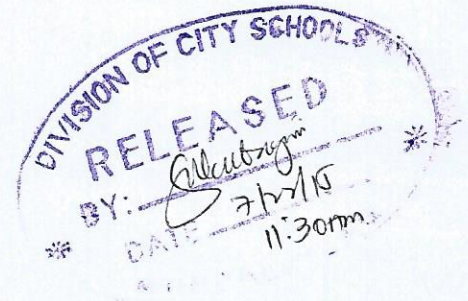 DIVISION OF CITY SCHOOLS
RELEASED
BY:
DATE 7/22/15
11:30am